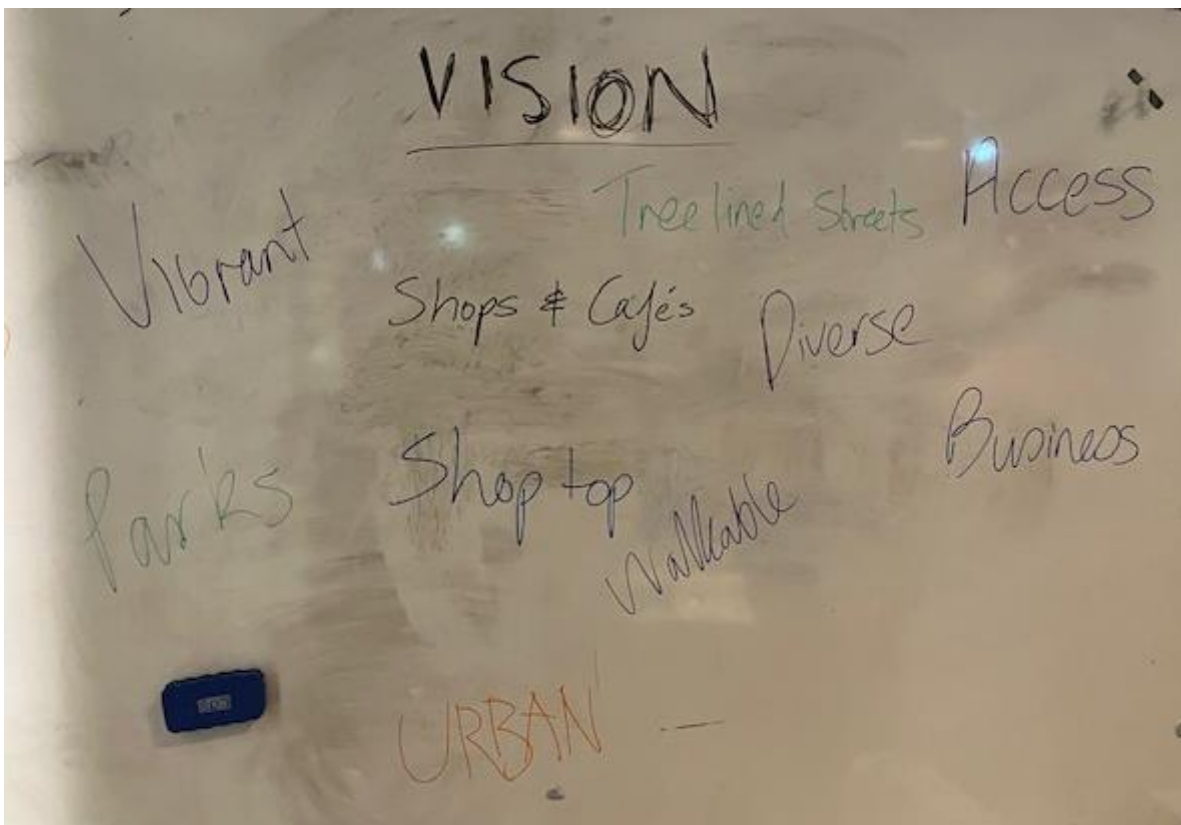 VISION
Tree lined Streets
Access
Vibrant
Shops & Cafés
Diverse
Business
Parks
Shop top
Walkable
URBAN